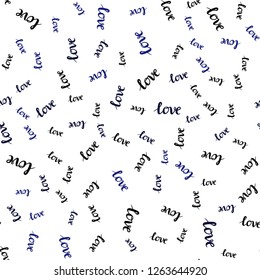 love love love love love love love
love love love love love love
love love love love love love
love love love love love love love
love love love love love love
love love love love love love love
love love love love love love
love love love love love love
love love love love love love love
love love love love love love
shutterstock.com · 1263644920